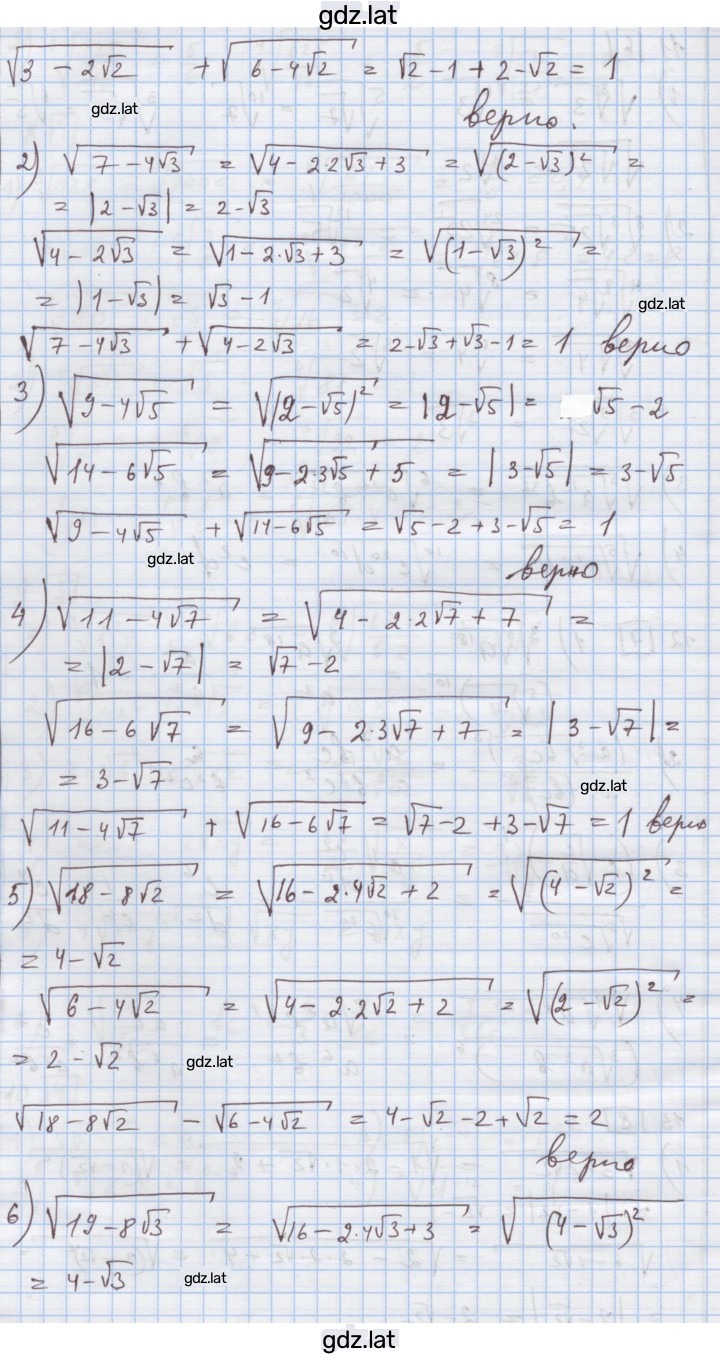 gdz.lat
√(3 - 2√2) + √(6 - 4√2) = √2 - 1 + 2 - √2 = 1
gdz.lat
верно.
2) √(7 - 4√3) = √(4 - 2·2√3 + 3) = √((2 - √3)²) =
= |2 - √3| = 2 - √3
√(4 - 2√3) = √(1 - 2·√3 + 3) = √((1 - √3)²) =
= |1 - √3| = √3 - 1
gdz.lat
√(7 - 4√3) + √(4 - 2√3) = 2 - √3 + √3 - 1 = 1 верно
3) √(9 - 4√5) = √((2 - √5)²) = |2 - √5| = √5 - 2
√(14 - 6√5) = √(9 - 2·3√5 + 5) = |3 - √5| = 3 - √5
√(9 - 4√5) + √(14 - 6√5) = √5 - 2 + 3 - √5 = 1
gdz.lat
верно
4) √(11 - 4√7) = √(4 - 2·2√7 + 7) =
= |2 - √7| = √7 - 2
√(16 - 6√7) = √(9 - 2·3√7 + 7) = |3 - √7| =
= 3 - √7
gdz.lat
√(11 - 4√7) + √(16 - 6√7) = √7 - 2 + 3 - √7 = 1 верно
5) √(18 - 8√2) = √(16 - 2·4√2 + 2) = √((4 - √2)²) =
= 4 - √2
√(6 - 4√2) = √(4 - 2·2√2 + 2) = √((2 - √2)²) =
= 2 - √2
gdz.lat
√(18 - 8√2) - √(6 - 4√2) = 4 - √2 - 2 + √2 = 2
верно
6) √(19 - 8√3) = √(16 - 2·4√3 + 3) = √((4 - √3)²)
= 4 - √3
gdz.lat
gdz.lat